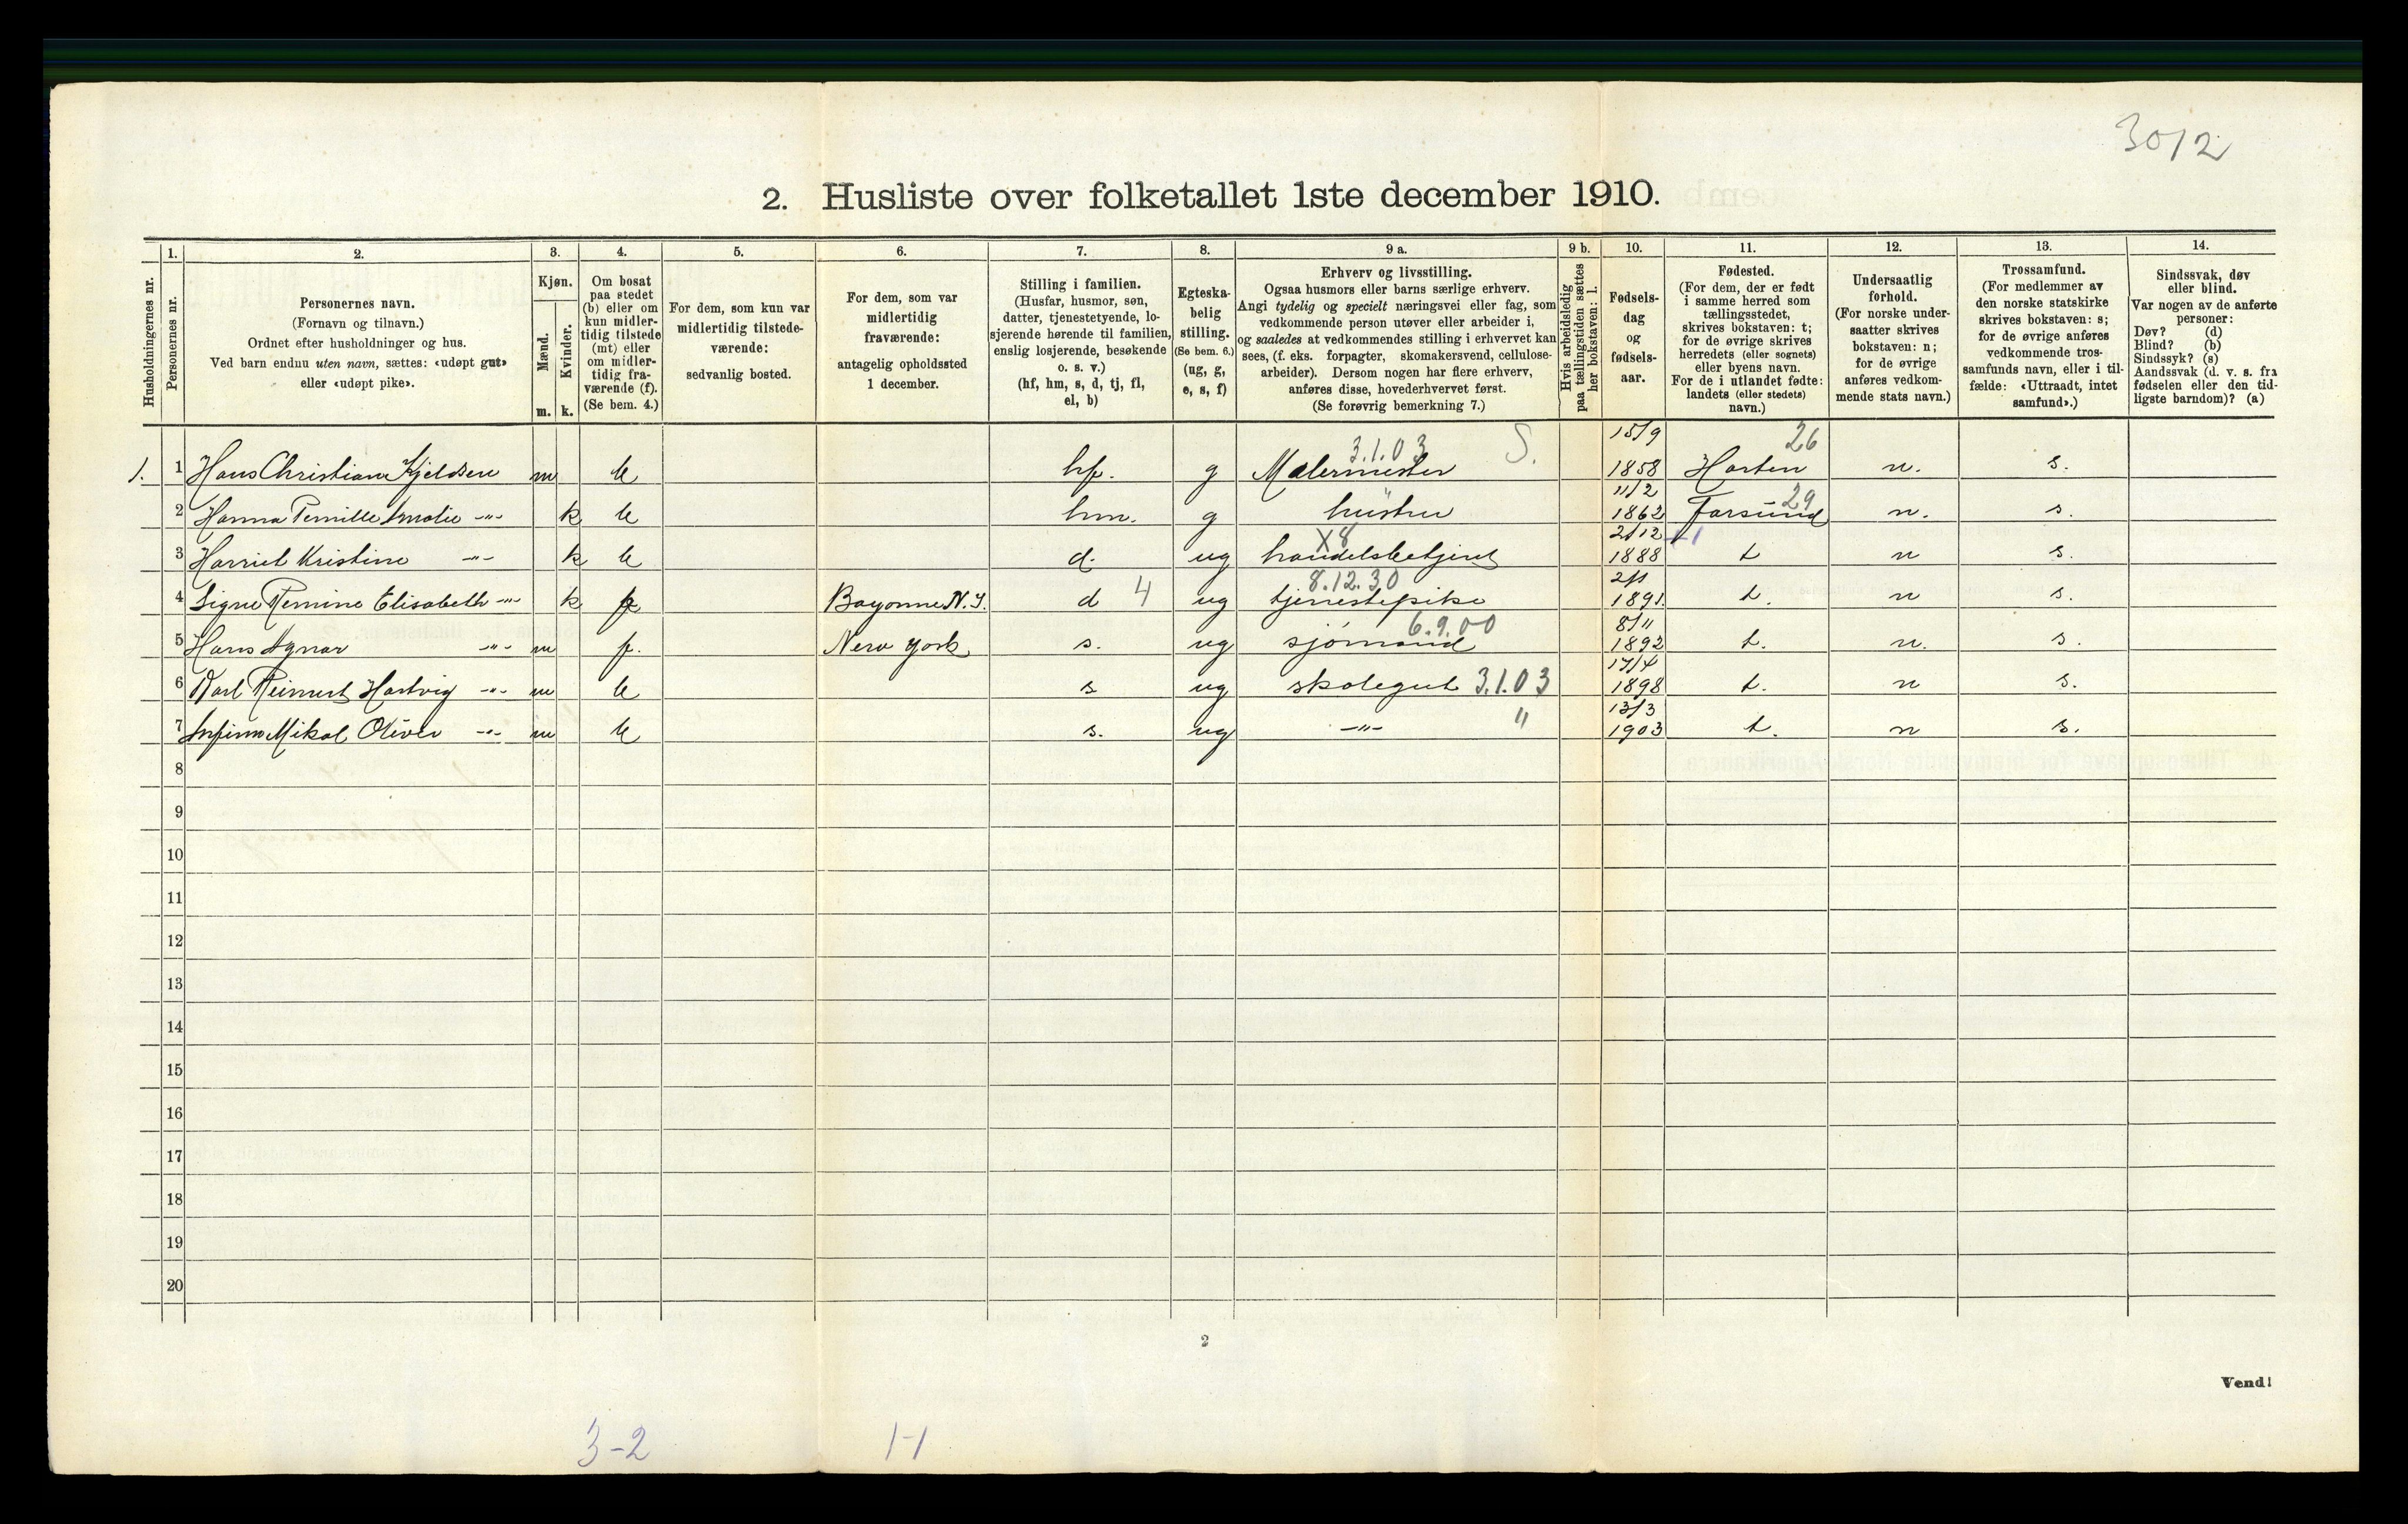 3012
2. Husliste over folketallet 1ste december 1910.
Husholdningernes nr.
1. Personernes nr.
2. Personernes navn. (Fornavn og tilnavn.) Ordnet efter husholdninger og hus. Ved barn endnu uten navn, sættes: «udøpt gut» eller «udøpt pike».
3. Kjøn. Mænd. m. Kvinder. k.
4. Om bosat paa stedet (b) eller om kun midlertidig tilstede (mt) eller om midlertidig fraværende (f). (Se bem. 4.)
5. For dem, som kun var midlertidig tilstedeværende: sedvanlig bosted.
6. For dem, som var midlertidig fraværende: antagelig opholdssted 1 december.
7. Stilling i familien. (Husfar, husmor, søn, datter, tjenestetyende, losjerende hørende til familien, enslig losjerende, besøkende o. s. v.) (hf, hm, s, d, tj, fl, el, b)
8. Egteskabelig stilling. (Se bem. 6.) (ug, g, e, s, f)
9 a. Erhverv og livsstilling. Ogsaa husmors eller barns særlige erhverv. Angi tydelig og specielt næringsvei eller fag, som vedkommende person utøver eller arbeider i, og saaledes at vedkommendes stilling i erhvervet kan sees, (f. eks. forpagter, skomakersvend, cellulosearbeider). Dersom nogen har flere erhverv, anføres disse, hovederhvervet først. (Se forøvrig bemerkning 7.)
9 b. Hvis arbeidsledig paa tællingstiden sættes her bokstaven: l.
10. Fødselsdag og fødselsaar.
11. Fødested. (For dem, der er født i samme herred som tællingsstedet, skrives bokstaven: t; for de øvrige skrives herredets (eller sognets) eller byens navn. For de i utlandet fødte: landets (eller stedets) navn.)
12. Undersaatlig forhold. (For norske undersaatter skrives bokstaven: n; for de øvrige anføres vedkommende stats navn.)
13. Trossamfund. (For medlemmer av den norske statskirke skrives bokstaven: s; for de øvrige anføres vedkommende trossamfunds navn, eller i tilfælde: «Uttraadt, intet samfund».)
14. Sindssvak, døv eller blind. Var nogen av de anførte personer: Døv? (d) Blind? (b) Sindssyk? (s) Aandssvak (d. v. s. fra fødselen eller den tidligste barndom)? (a)
1. 1 Hans Christian Kjeldsen m b hf. g Malermester 3.1.03 S. 15/9 1858 Horten 26 n. s.
2 Hanna Pernille Amalie -"- k b hm. g hustru 11/2 1862 Farsund 29 n. s.
3 Harriet Kristine -"- k b d. ug handelsbetjent X8 2/12 1888 t n s.
4 Signe Remine Elisabeth -"- k f Bayonne N.Y. d 4 ug tjenestepike 8.12.30 2/1 1891. t. n s.
5 Hans Agnar -"- m f. New York s. ug sjømand 6.9.00 8/11 1892 t. n. s.
6 Karl Reimert Hartvig -"- m b s ug skolegut 3.1.03 17/4 1898 t. n s.
7 Mikal Oliver -"- m b s. ug -"- " 13/3 1903 t. n s.
8
9
10
11
12
13
14
15
16
17
18
19
20
2
Vend!
3-2 1-1